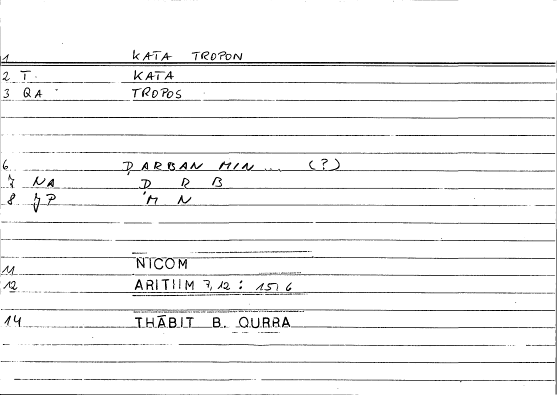 1 KATA TROPON
2 T. KATA
3 QA TROPOS
6 ḌARBAN MIN ... (?)
7 NA Ḍ R B
8 JP M N
11 NICOM
12 ARITIIM 7,12 : 15,6
14 THĀBIT B. QURRA